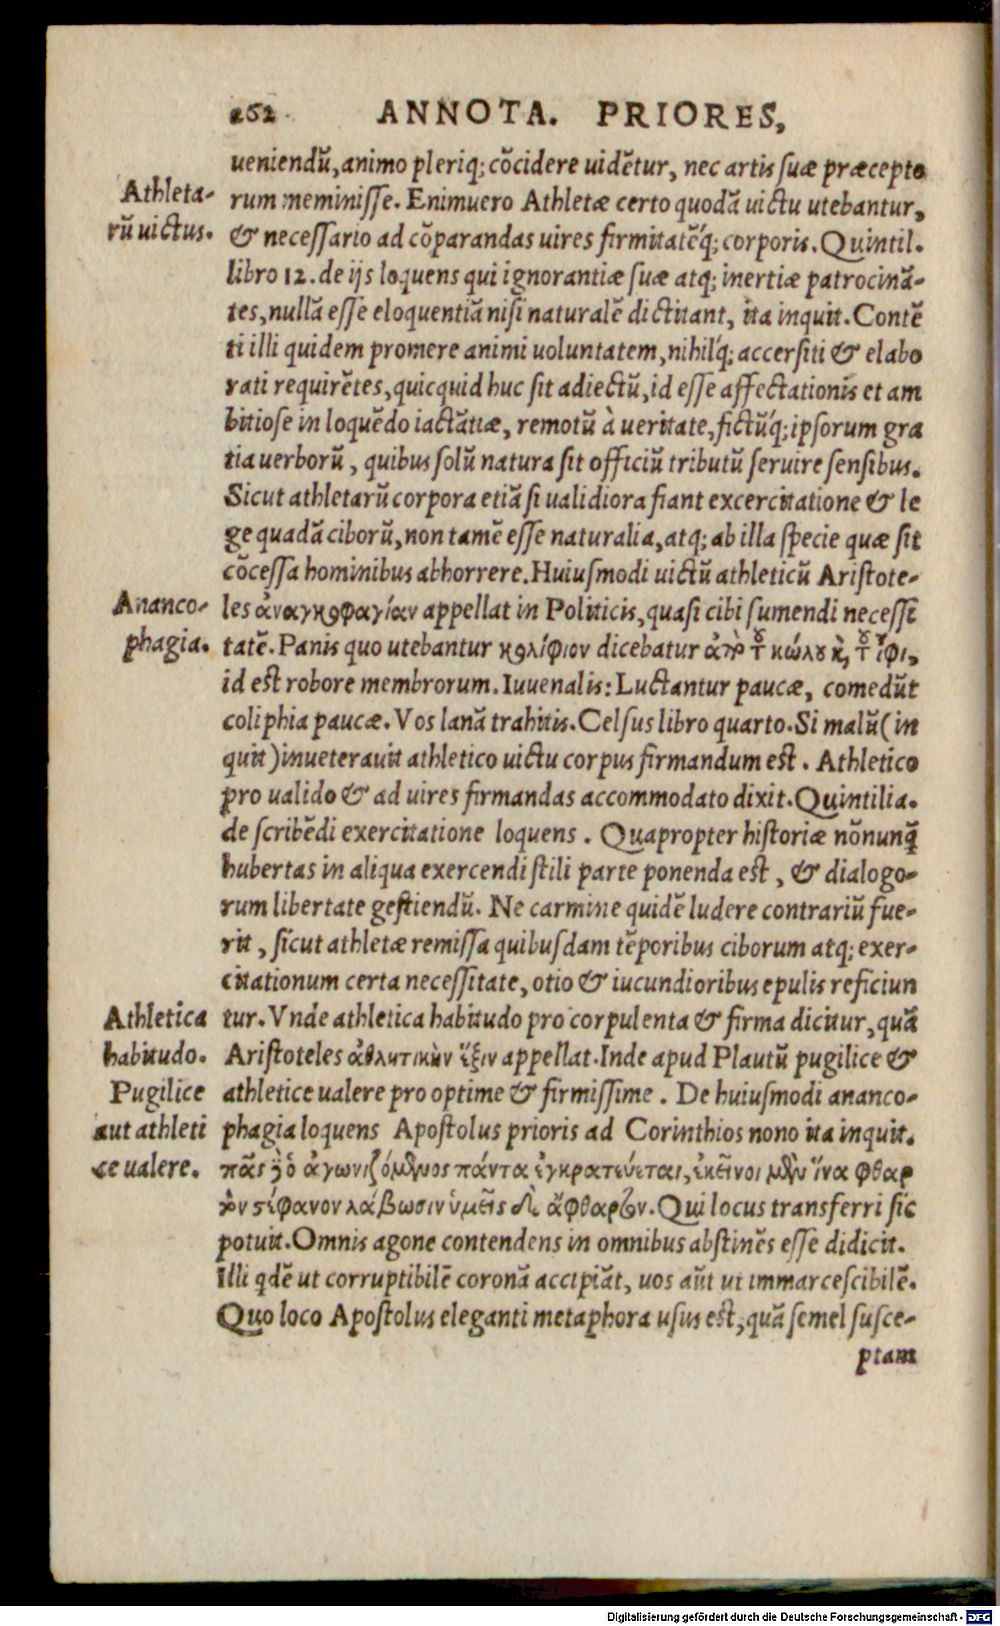 262 ANNOTA. PRIORES,
ueniendū, animo pleriq; cōcidere uidētur, nec artis suæ præcepto
Athleta-
rum meminisse. Enimuero Athletæ certo quodā uictu utebantur,
rū uictus.
& necessario ad cōparandas uires firmitatēq́; corporis. Quintil.
libro 12. de ijs loquens qui ignorantiæ suæ atq; inertiæ patrocinā-
tes, nullā esse eloquentiā nisi naturalē dictitant, ita inquit. Contē
ti illi quidem promere animi uoluntatem, nihilq́; accersiti & elabo
rati requirētes, quicquid huc sit adiectū, id esse affectationis et am
bitiose in loquēdo iactātiæ, remotū à ueritate, fictūq́; ipsorum gra
tia uerborū, quibus solū natura sit officiū tributū seruire sensibus.
Sicut athletarū corpora etiā si ualidiora fiant excercitatione & le
ge quadā ciborū, non tamē esse naturalia, atq; ab illa specie quæ sit
cōcessa hominibus abhorrere. Huiusmodi uictū athleticū Aristote-
Ananco-
les ἀναγκοφαγίαν appellat in Politicis, quasi cibi sumendi necessi
phagia.
tatē. Panis quo utebantur κολίφιον dicebatur ἀπὸ τοῦ κώλου καὶ, τοῦ ἶφι,
id est robore membrorum. Iuuenalis: Luctantur paucæ, comedūt
coliphia paucæ. Vos lanā trahitis. Celsus libro quarto. Si malū (in
quit) inueterauit athletico uictu corpus firmandum est. Athletico
pro ualido & ad uires firmandas accommodato dixit. Quintilia.
de scribēdi exercitatione loquens. Quapropter historiæ nōnunq̄
hubertas in aliqua exercendi stili parte ponenda est, & dialogo-
rum libertate gestiendū. Ne carmine quidē ludere contrariū fue-
rit, sicut athletæ remissa quibusdam tēporibus ciborum atq; exer-
citationum certa necessitate, otio & iucundioribus epulis reficiun
Athletica
tur. Vnde athletica habitudo pro corpulenta & firma dicitur, quā
habitudo.
Aristoteles ἀθλητικὴν ἕξιν appellat. Inde apud Plautū pugilice &
Pugilice
athletice ualere pro optime & firmissime. De huiusmodi ananco-
aut athleti
phagia loquens Apostolus prioris ad Corinthios nono ita inquit.
ce ualere.
πᾶς γὸ ὁ ἀγωνιζόμενος πάντα ἐγκρατεύεται, ἐκεῖνοι μὲν ἵνα φθαρ
τὸν στέφανον λάβωσιν ὑμεῖς δὲ ἄφθαρτον. Qui locus transferri sic
potuit. Omnis agone contendens in omnibus abstinēs esse didicit.
Illi qdē ut corruptibilē coronā accipiāt, uos aūt ut immarcescibilē.
Quo loco Apostolus eleganti metaphora usus est, quā semel susce-
ptam
Digitalisierung gefördert durch die Deutsche Forschungsgemeinschaft - DFG